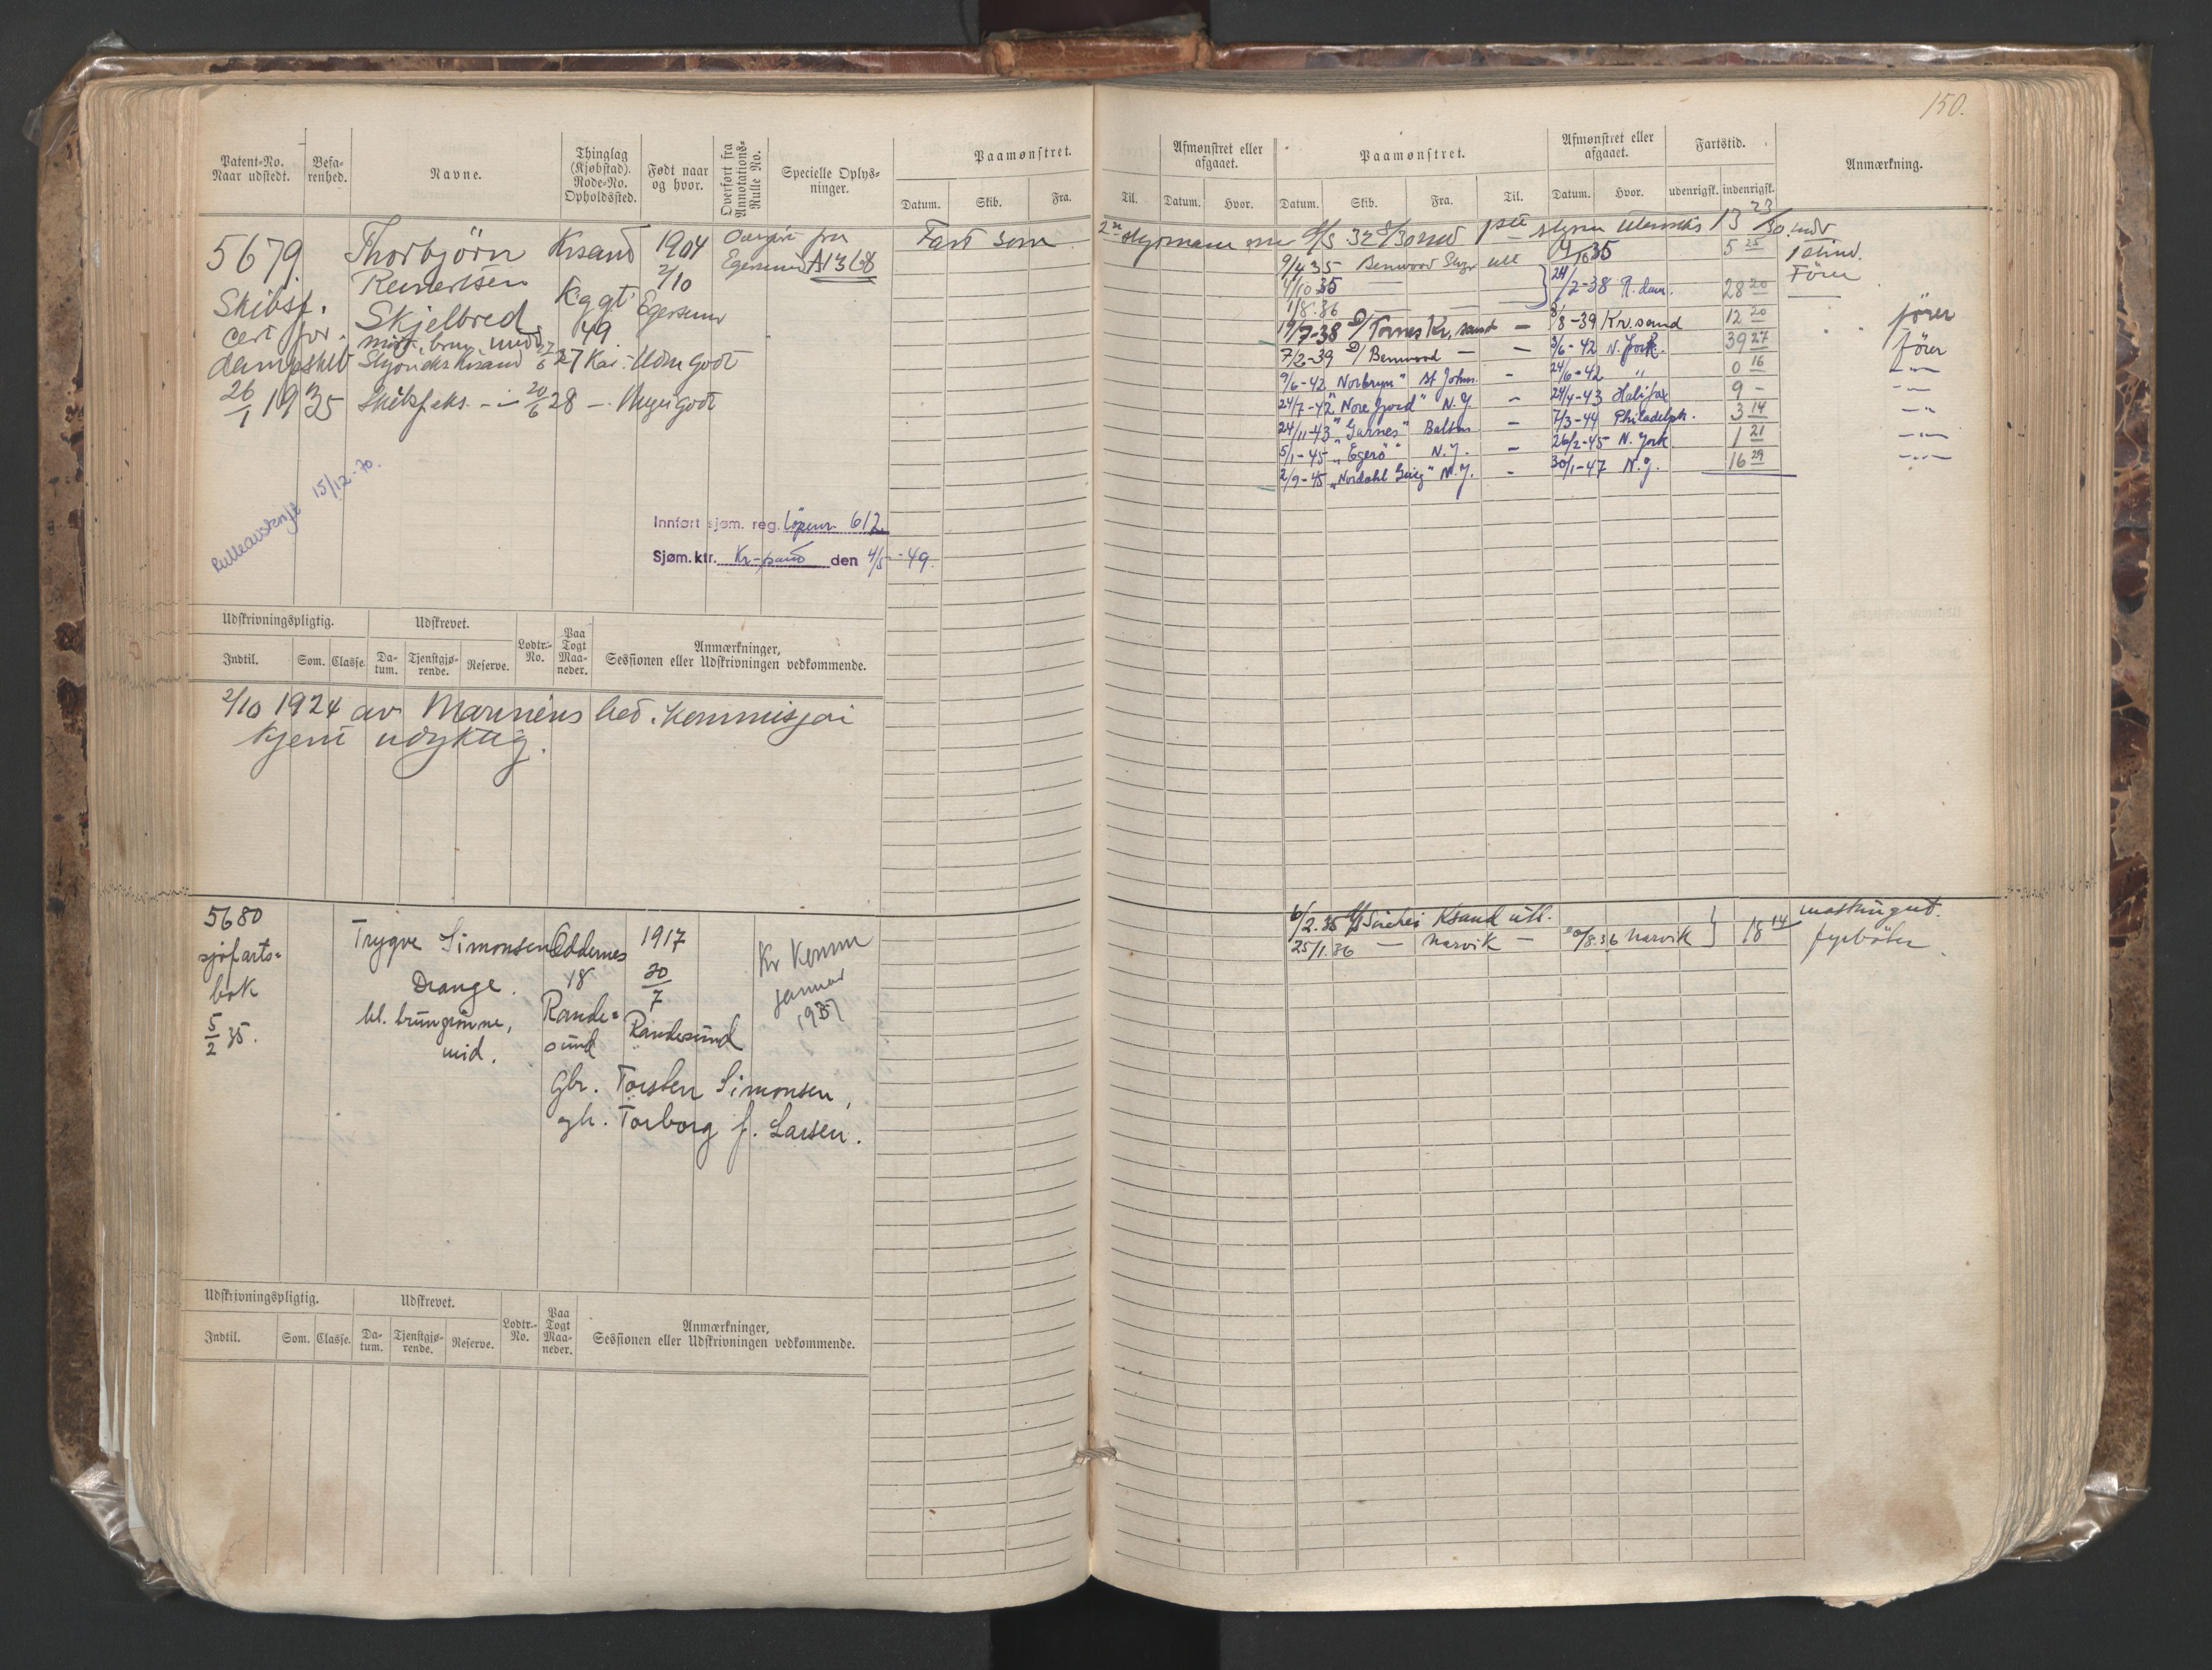 150.
Patent-No. Naar udstedt.
Befarenhed.
Navne.
Thinglag (Kjøbstad). Rode-No. Opholdssted.
Født naar og hvor.
Overført fra Annotations-Rulle No.
Specielle Oplysninger.
Paamønstret.
Datum. Skib. Fra. Til.
Afmønstret eller afgaaet.
Datum. Hvor.
Paamønstret.
Datum. Skib. Fra. Til.
Afmønstret eller afgaaet.
Datum. Hvor.
Fartstid.
udenrigsk. indenrigsk.
Anmærkning.
5679
Skibsf.
cert for
dampskib
26/1 1935
Thorbjörn
Reinertsen
Skjelbred
Krsand
Kggt.
49
1904
2/10
Egersund
fra
Egersund A1368
27 Kar. Udm Godt
Skibsf.eks. - 20/6 28 - Meget Godt
Rulleavskrift 15/12-70.
Innført sjøm. reg. Löpenr. 612
Sjøm.ktr. Kr-sand den 4/5-49.
Fart som
2n styrmann
9/4 35 Benwood Styr utl 4/10 35 5 25
4/10 35 — 24/2-38 R.dam. 28 20 Förer
1/8.36 —
19/7-38 D/ Tornes Kr.sand — 8/8-39 Kr.sand 12 20 förer
7/2-39 D/ Benwood — — 3/6-42 N. York. 39 27 förer
9/6-42 "Norbryn" St John. - 24/6-42 " 0 16 -"-
24/7-42 "Norefjord" N.Y. - 24/4-43 Halifax 9 - -"-
24/11-43 "Garnes" Baltim - 7/3-44 Philadelph. 3 14 -"-
5/1-45 "Egerö" N.Y. - 26/2-45 N. York 1 21 -"-
2/9-45 "Nordahl Grieg" N.Y. - 30/1-47 N.Y. 16 29 -"-
Udskrivningspligtig.
Udskrevet.
Indtil. Som. Classe. Datum. Tjenstgjørende. Reserve.
Lodtr.-No.
Paa Togt Maaneder.
Anmærkninger,
Sessionen eller Udskrivningen vedkommende.
2/10 1924 av Marinens bed. Kommisjon
kjent udyktig.
5680
sjøfarts=
bok
5/2 35.
Trygve Simonsen
Drange.
bl. brungrønne,
mid.
Oddernes
48
Rande=
sund
1917
20/7
Randesund
Kr Komm
januar
1937
Gbr. Torsten Simonsen,
gh. Torborg f. Larsen.
6/2.35 Ksand utl.
25/1.36 — Narvik — 20/8.36 Narvik 18 14
maskingut.
fyrbøter
Udskrivningspligtig.
Udskrevet.
Indtil. Som. Classe. Datum. Tjenstgjørende. Reserve.
Lodtr.-No.
Paa Togt Maaneder.
Anmærkninger,
Sessionen eller Udskrivningen vedkommende.